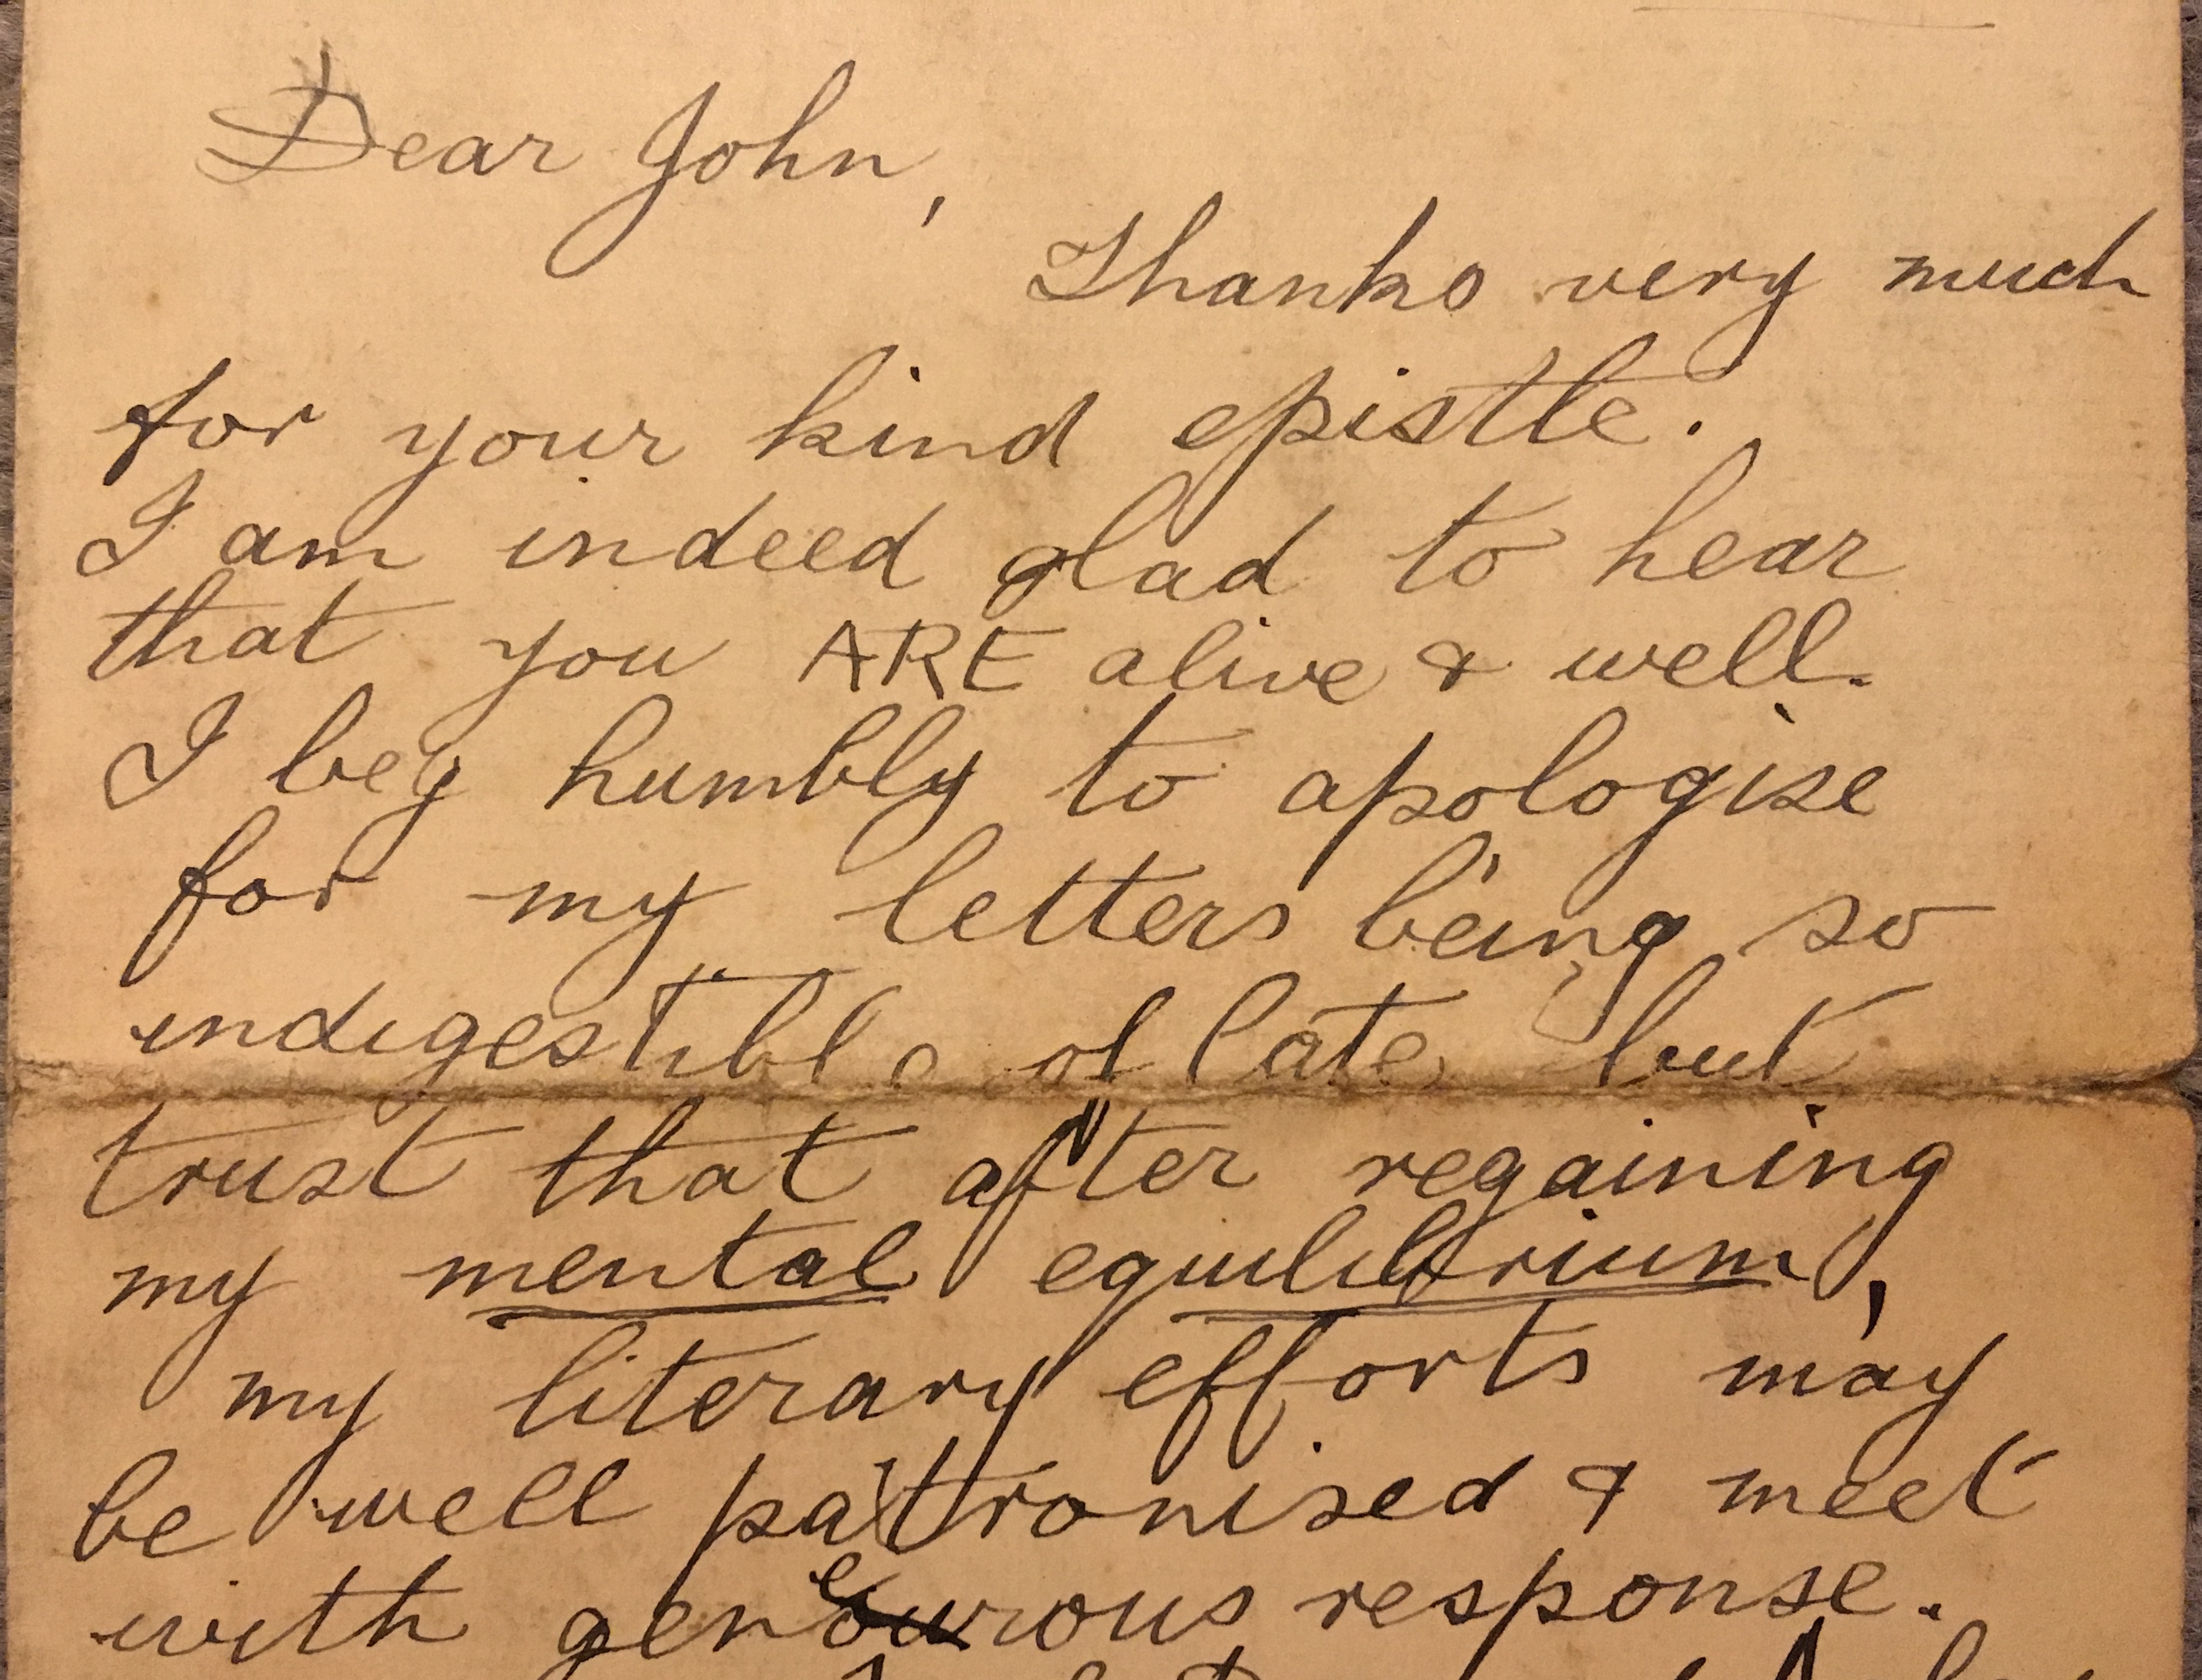 Dear John,
Thanks very much
for your kind epistle.
I am indeed glad to hear
that you ARE alive & well.
I beg humbly to apologise
for my letters being so
indigestible of late, but
trust that after regaining
my mental equilibrium,
my literary efforts may
be well patronised & meet
with generous response.